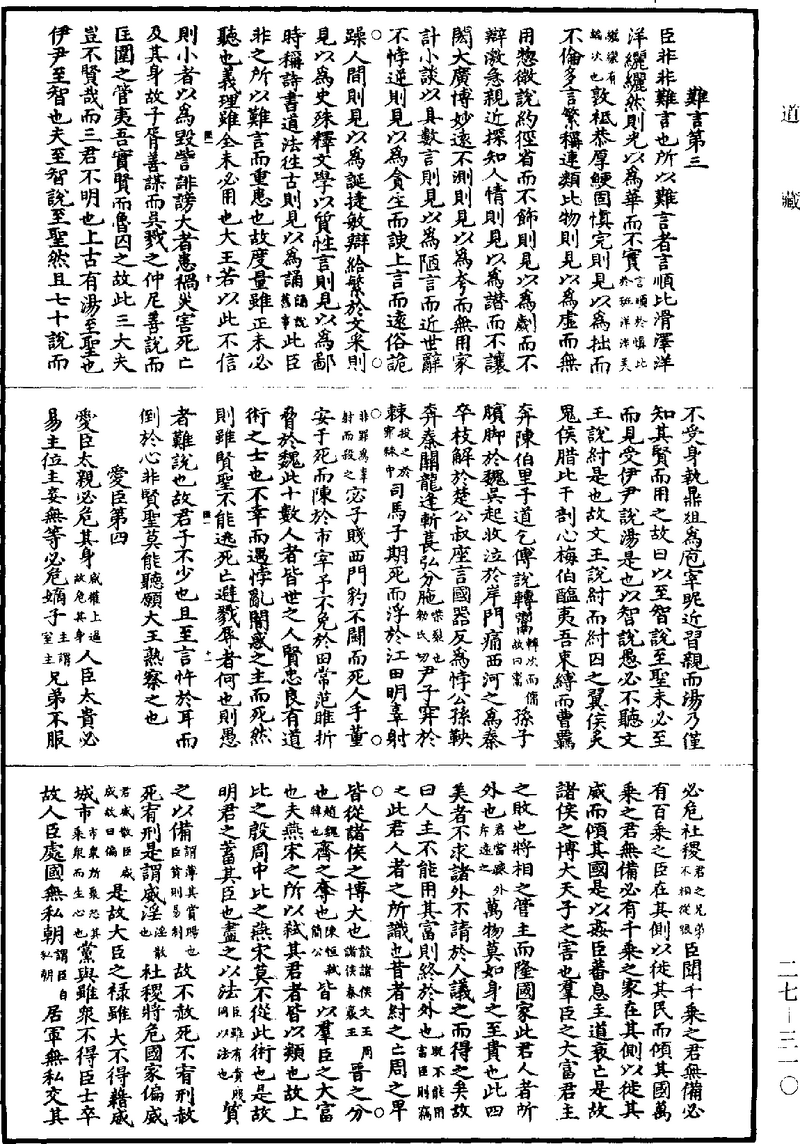 道藏
難言第三
臣非非難言也所以難言者言順比滑澤洋
洋纚纚然則見以為華而不實言順於慎比於班洋洋美纚纚有編次也敦祗恭厚鯁固慎完則見以為拙而
不倫多言繁稱連類比物則見以為虛而無
用惣微說約徑省而不飾則見以為劌而不
辯激急親近探知人情則見以為譖而不讓
閎大廣博妙遠不測則見以為夸而無用家
計小談以具數言則見以為陋言而近世辭
不悖逆則見以為貪生而諛上言而遠俗詭
躁人間則見以為誕捷敏辯給繁於文采則
見以為史殊釋文學以質性言則見以為鄙
時稱詩書道法往古則見以為誦誦說舊事此臣
非之所以難言而重患也故度量雖正未必
聽也義理雖全未必用也大王若以此不信
則小者以為毀訾誹謗大者患禍災害死亡
及其身故子胥善謀而吳戮之仲尼善說而
匡圍之管夷吾實賢而魯囚之故此三大夫
豈不賢哉而三君不明也上古有湯至聖也
伊尹至智也夫至智說至聖然且七十說而
不受身執鼎俎為庖宰昵近習親而湯乃僅
知其賢而用之故曰以至智說至聖未必至
而見受伊尹說湯是也以智說愚必不聽文
王說紂是也故文王說紂而紂囚之翼侯炙
鬼侯腊比干剖心梅伯醢夷吾束縛而曹羈
奔陳伯里子道乞傅說轉鬻轉次而傭故曰鬻孫子
臏脚於魏吳起收泣於岸門痛西河之為秦
卒枝解於楚公叔座言國器反為悖公孫鞅
奔秦關龍逢斬萇弘分胣裂也尹子穽於
棘投之於穽棘中司馬子期死而浮於江田明辜射
非罪為辜射而殺之宓子賤西門豹不鬭而死人手董
安于死而陳於市宰予不免於田常范雎折
脅於魏此十數人者皆世之人賢忠良有道
術之士也不幸而遇悖亂闇惑之主而死然
則雖賢聖不能逃死亡避戮辱者何也則愚
者難說也故君子不少也且至言忤於耳而
倒於心非賢聖莫能聽願大王熟察之也
愛臣第四
愛臣太親必危其身威權上逼故危其身人臣太貴必
易主位主妾無等必危嫡子主謂室主兄弟不服
必危社稷君之兄弟不相從服臣聞千乘之君無備必
有百乘之臣在其側以徙其民而傾其國萬
乘之君無備必有千乘之家在其側以徙其
威而傾其國是以姦臣蕃息主道衰亡是故
諸侯之博大天子之害也羣臣之太富君主
之敗也將相之管主而隆國家此君人者所
外也君當疎外斥遠之萬物莫如身之至貴也此四
美者不求諸外不請於人議之而得之矣故
曰人主不能用其富則終於外也既不能用富臣則竊
之此君人者之所識也昔者紂之亡周之卑
皆從諸侯之博大也殷諸侯文王周諸侯春襄王晉之分
也趙魏韓也齊之奪也陳恒弒簡公皆以羣臣之太富
也夫燕宋之所以弒其君者皆以類也故上
比之殷周中比之燕宋莫不從此術也是故
明君之蓄其臣也盡之以法臣雖有貴賤同以法也質
之以備謂薄其賞賜也臣貧則易制故不赦死不宥刑赦
死宥刑是謂威淫淫散也社稷將危國家偏威
君威散臣威成故曰偏是故大臣之祿雖大不得藉威
城市市衆所聚恐其乘衆而生心也黨與雖衆不得臣士卒
故人臣處國無私朝謂臣自私朝居軍無私交其
二七─三一〇